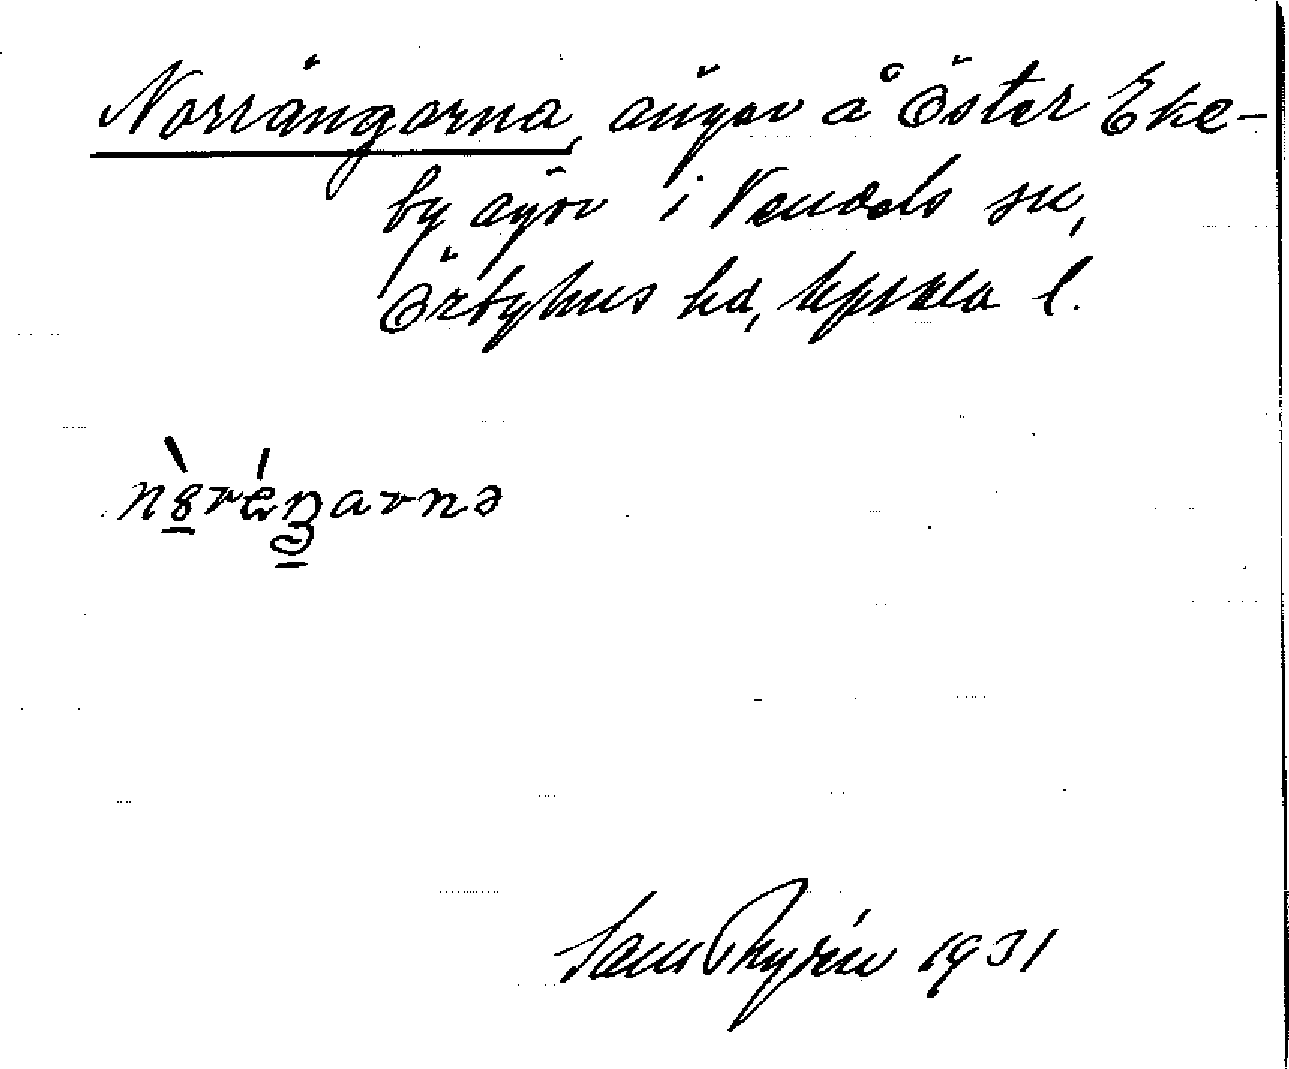 Norrängarna, ängar å Öster Eke-
by ägor i Vendels sn,
Örbyhus hd, Upsala l.
nòréŋarnə
Sam 1931